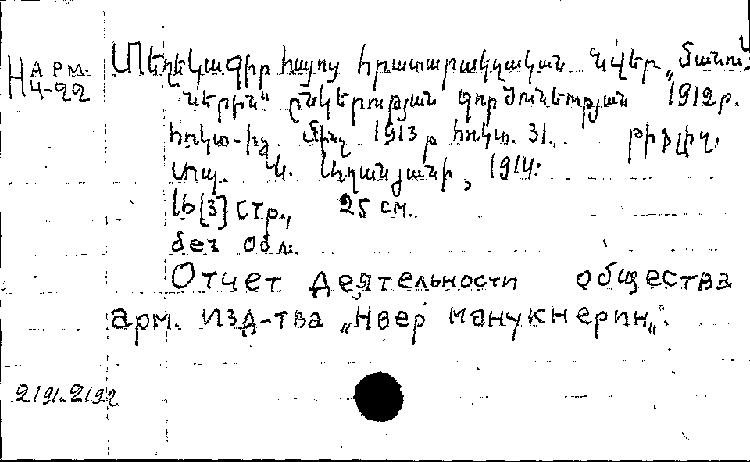 Н АРМ.
4-22
Տեղեկագիր հայոց հրատարակչական նվեր „Մանուկ-
ների“ ընկերության գործունեության 1912 թ.
հոկտ-ից մինչ 1913 թ հոկտ. 31. թիֆլիզ.
տպ. Ա. 1914:
16[3] стр., 25 см.
без обл.
Отчет деятельности общества
арм. изд-тва „Нвер манукнерин„.
2191-2192